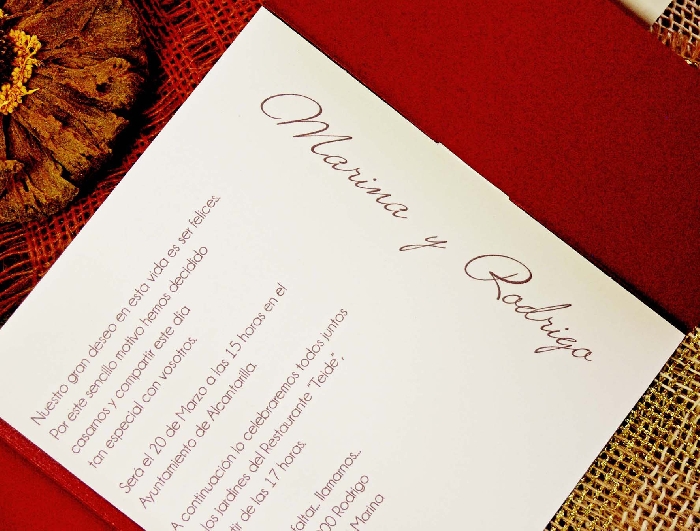 Marina y Rodrigo
Nuestro gran deseo en esta vida es ser felices.
Por este sencillo motivo hemos decidido
casarnos y compartir este día
tan especial con vosotros.
Será el 20 de Marzo a las 15 horas en el
Ayuntamiento de Alcantarilla.
A continuación lo celebraremos todos juntos
los jardines del Restaurante "Teide",
tir de las 17 horas.
faltar... llamarnos...
00 Rodrigo
Marina